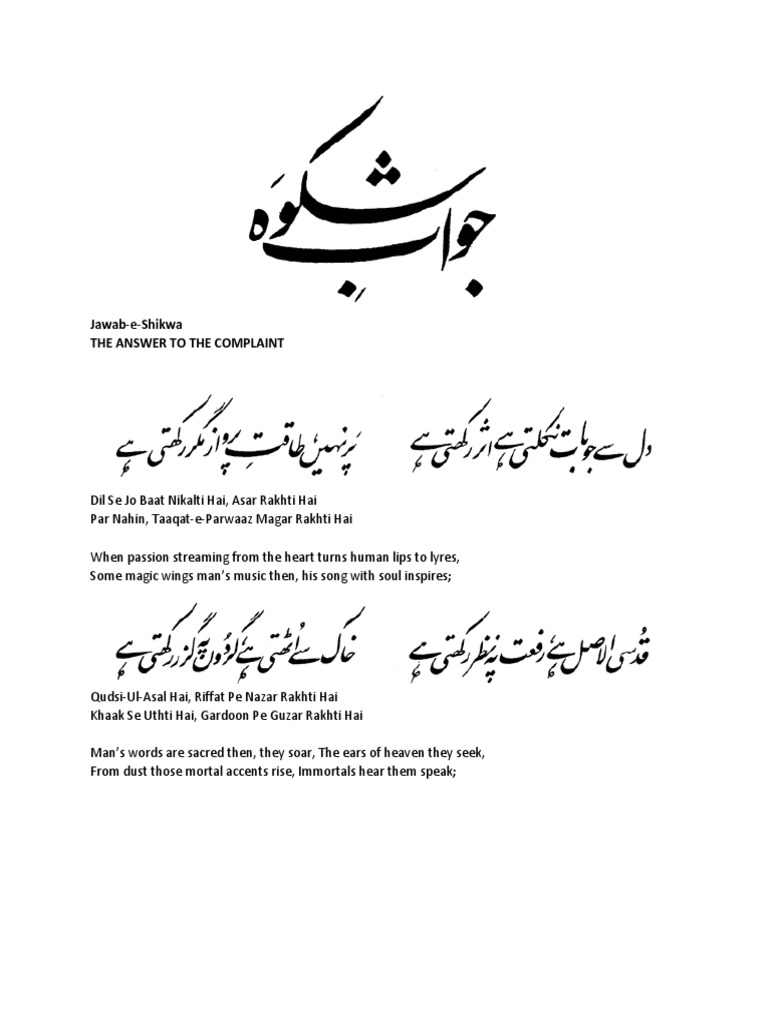 جوابِ شکوَہ
Jawab-e-Shikwa
THE ANSWER TO THE COMPLAINT
دل سے جو بات نکلتی ہے اثر رکھتی ہے پَر نہیں، طاقتِ پرواز مگر رکھتی ہے
Dil Se Jo Baat Nikalti Hai, Asar Rakhti Hai
Par Nahin, Taaqat-e-Parwaaz Magar Rakhti Hai
When passion streaming from the heart turns human lips to lyres,
Some magic wings man’s music then, his song with soul inspires;
قُدسی الاصل ہے، رفعت پہ نظر رکھتی ہے خاک سے اُٹھتی ہے، گردُوں پہ گزر رکھتی ہے
Qudsi-Ul-Asal Hai, Riffat Pe Nazar Rakhti Hai
Khaak Se Uthti Hai, Gardoon Pe Guzar Rakhti Hai
Man’s words are sacred then, they soar, The ears of heaven they seek,
From dust those mortal accents rise, Immortals hear them speak;